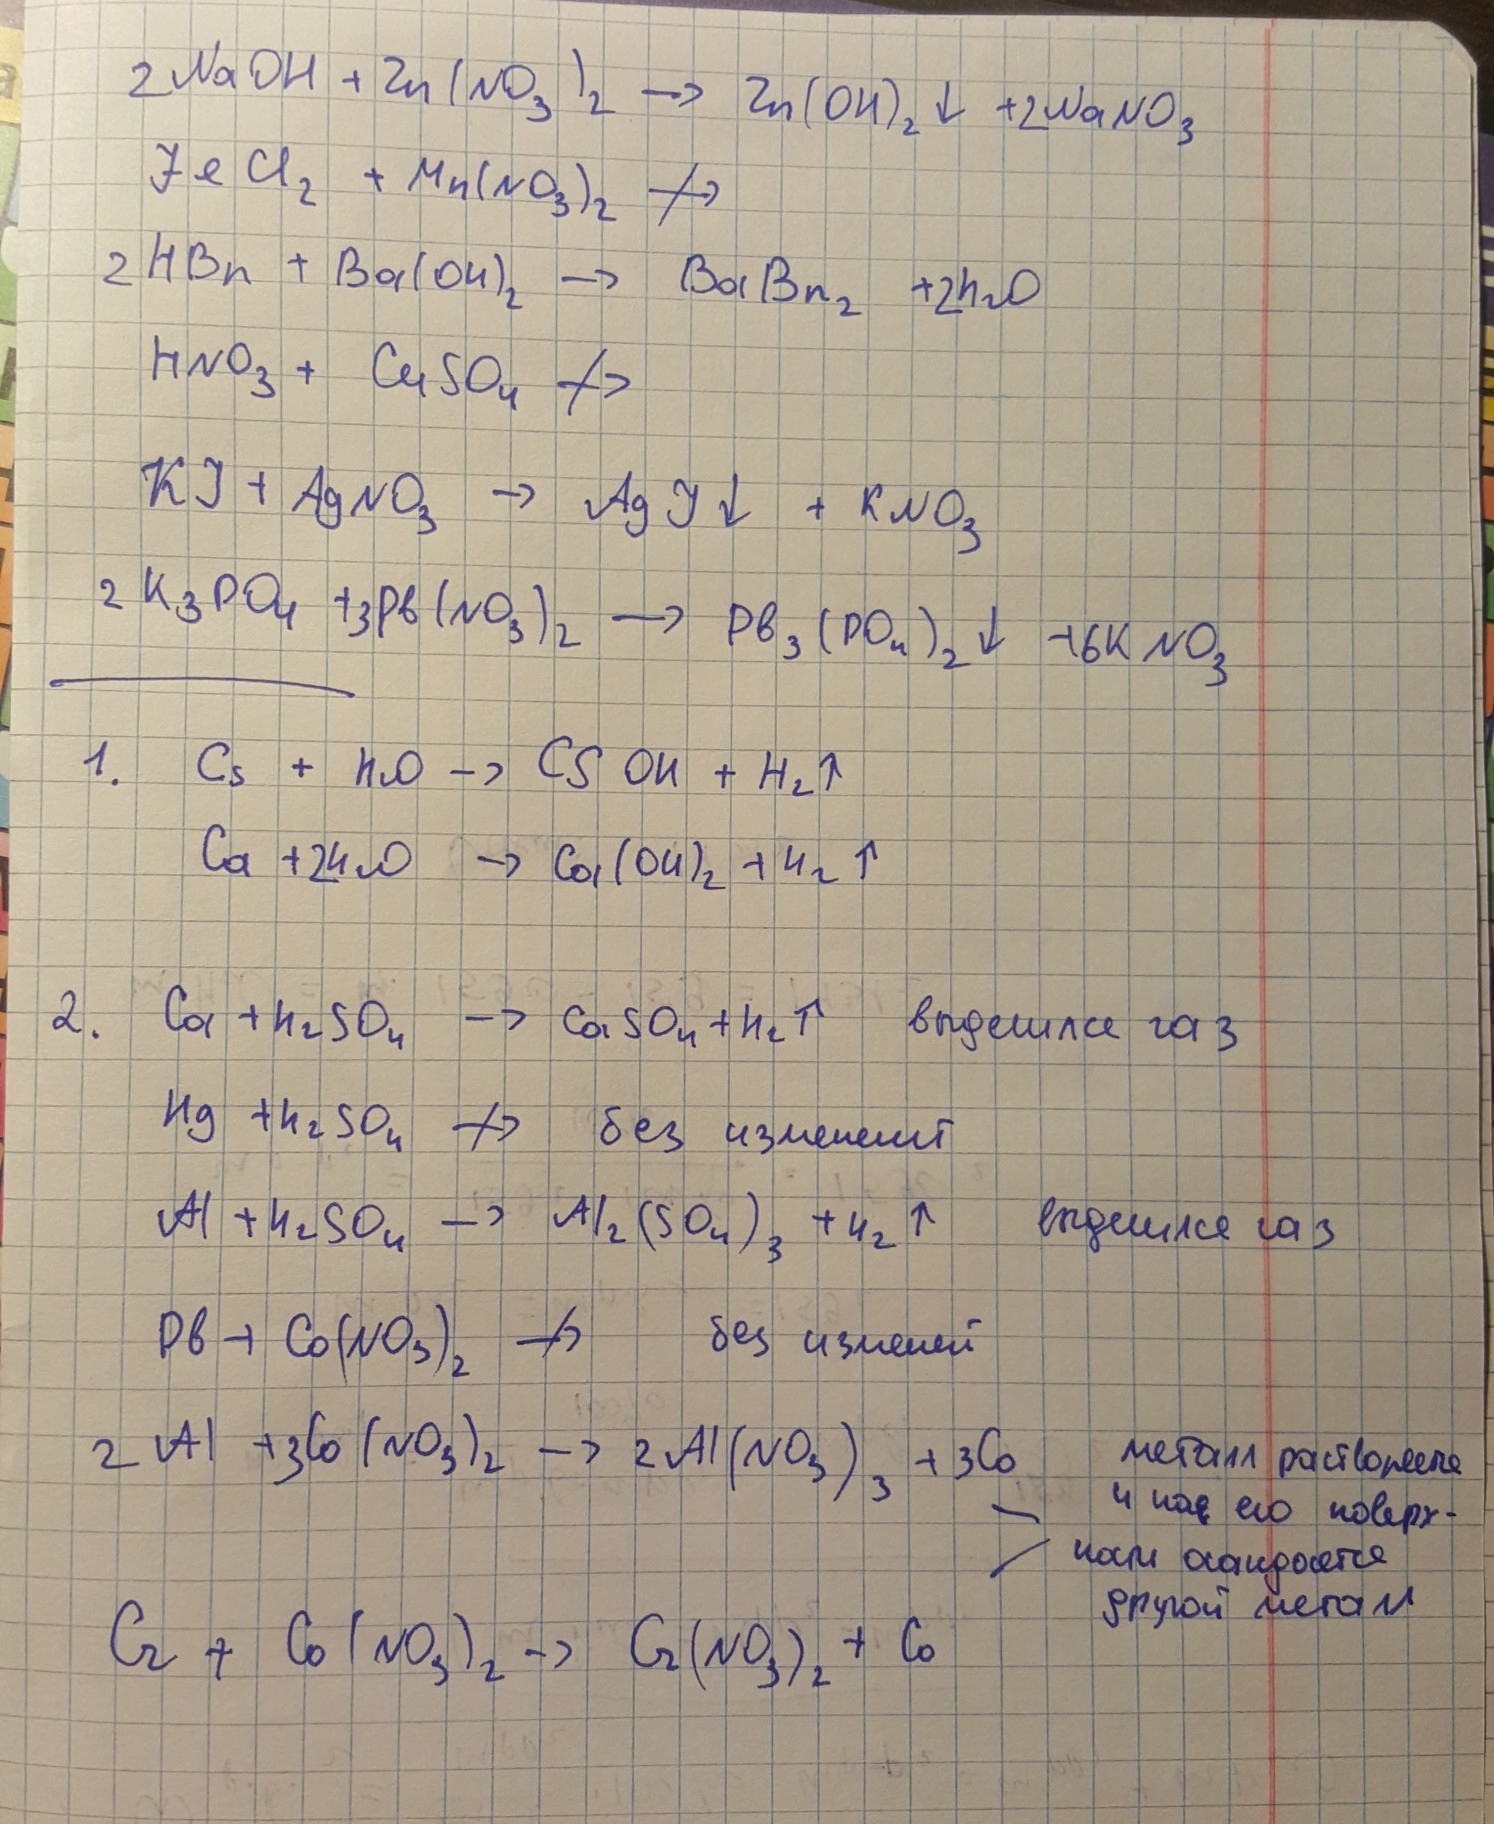 2NaOH + Zn(NO₃)₂ → Zn(OH)₂↓ + 2NaNO₃
FeCl₂ + Mn(NO₃)₂ ↛
2HBr + Ba(OH)₂ → BaBr₂ + 2H₂O
HNO₃ + CuSO₄ ↛
KJ + AgNO₃ → AgJ↓ + KNO₃
2K₃PO₄ + 3Pb(NO₃)₂ → Pb₃(PO₄)₂↓ + 6KNO₃
1. Cs + H₂O → CsOH + H₂↑
Ca + 2H₂O → Ca(OH)₂ + H₂↑
2. Ca + H₂SO₄ → CaSO₄ + H₂↑ выделился газ
Hg + H₂SO₄ ↛ без изменений
Al + H₂SO₄ → Al₂(SO₄)₃ + H₂↑ выделился газ
Pb + Co(NO₃)₂ ↛ без изменений
2Al + 3Co(NO₃)₂ → 2Al(NO₃)₃ + 3Co металл растворяется
и на его поверх-
ности осаждается
другой металл
Cr + Co(NO₃)₂ → Cr(NO₃)₂ + Co